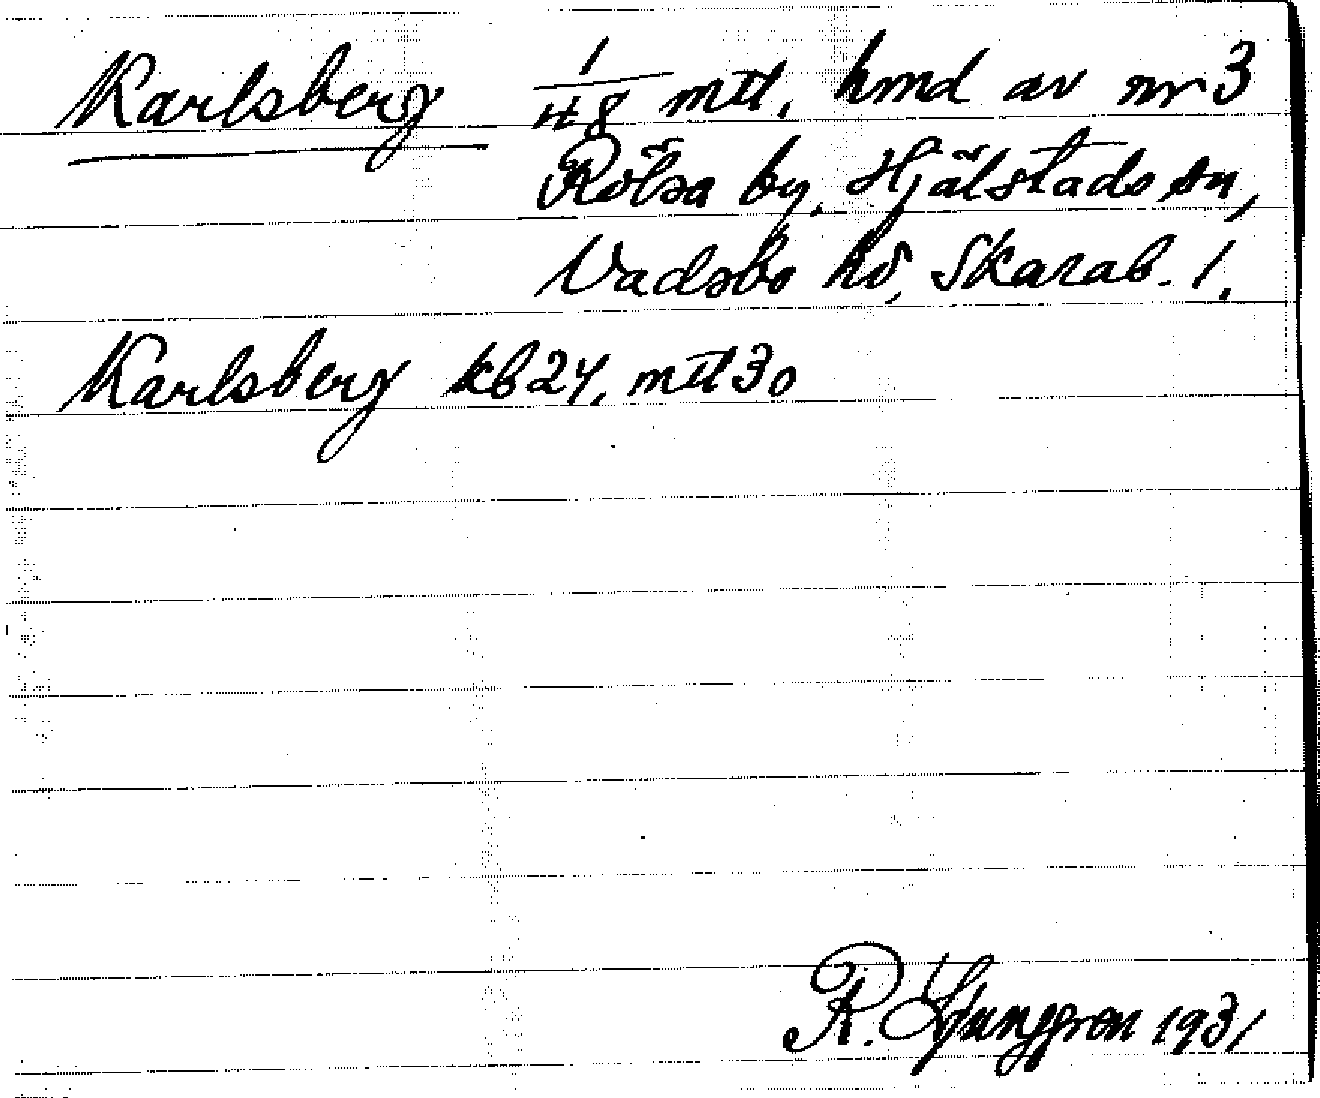 Karlsberg 1/48 mtl, hmd av nr 3
Rölsa by, Hjälstads sn,
Vadsbo hd, Skarab. l.
Karlsberg kb 24, mtl 30
R. Ljunggren 1931